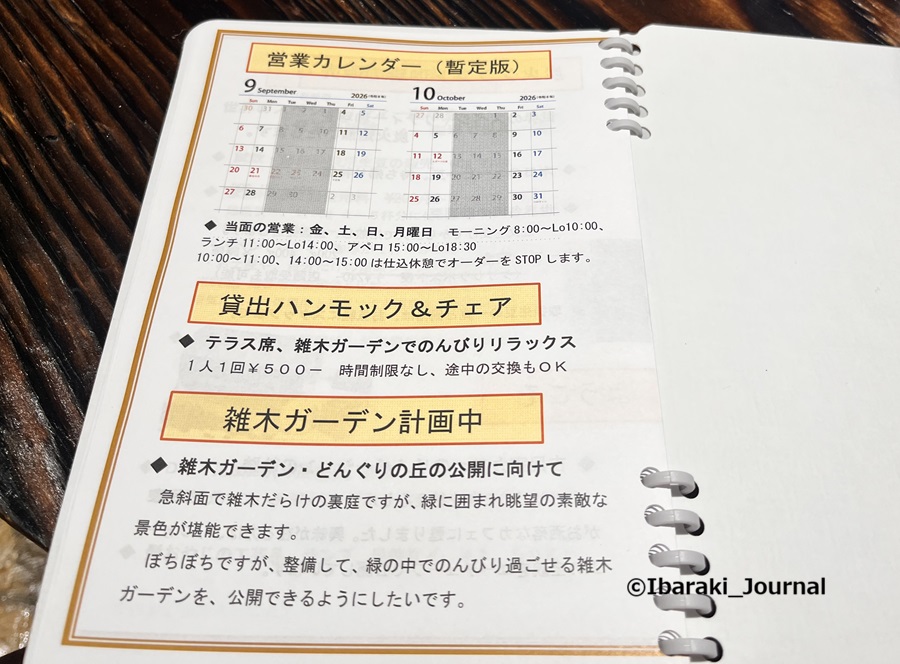 営業カレンダー（暫定版）
9 September 2026
Sun Mon Tue Wed Thu Fri Sat
30 31 1 2 3 4 5
6 7 8 9 10 11 12
13 14 15 16 17 18 19
20 21 22 23 24 25 26
27 28 29 30 1 2 3
10 October 2026
Sun Mon Tue Wed Thu Fri Sat
27 28 29 30 1 2 3
4 5 6 7 8 9 10
11 12 13 14 15 16 17
18 19 20 21 22 23 24
25 26 27 28 29 30 31
◆ 当面の営業：金、土、日、月曜日 モーニング 8:00～Lo10:00、
ランチ 11:00～Lo14:00、アペロ 15:00～Lo18:30
10:00～11:00、14:00～15:00 は仕込休憩でオーダーを STOP します。
貸出ハンモック＆チェア
◆ テラス席、雑木ガーデンでのんびりリラックス
１人１回￥５００－ 時間制限なし、途中の交換もＯＫ
雑木ガーデン計画中
◆ 雑木ガーデン・どんぐりの丘の公開に向けて
急斜面で雑木だらけの裏庭ですが、緑に囲まれ眺望の素敵な
景色が堪能できます。
ぼちぼちですが、整備して、緑の中でのんびり過ごせる雑木
ガーデンを、公開できるようにしたいです。
©Ibaraki_Journal